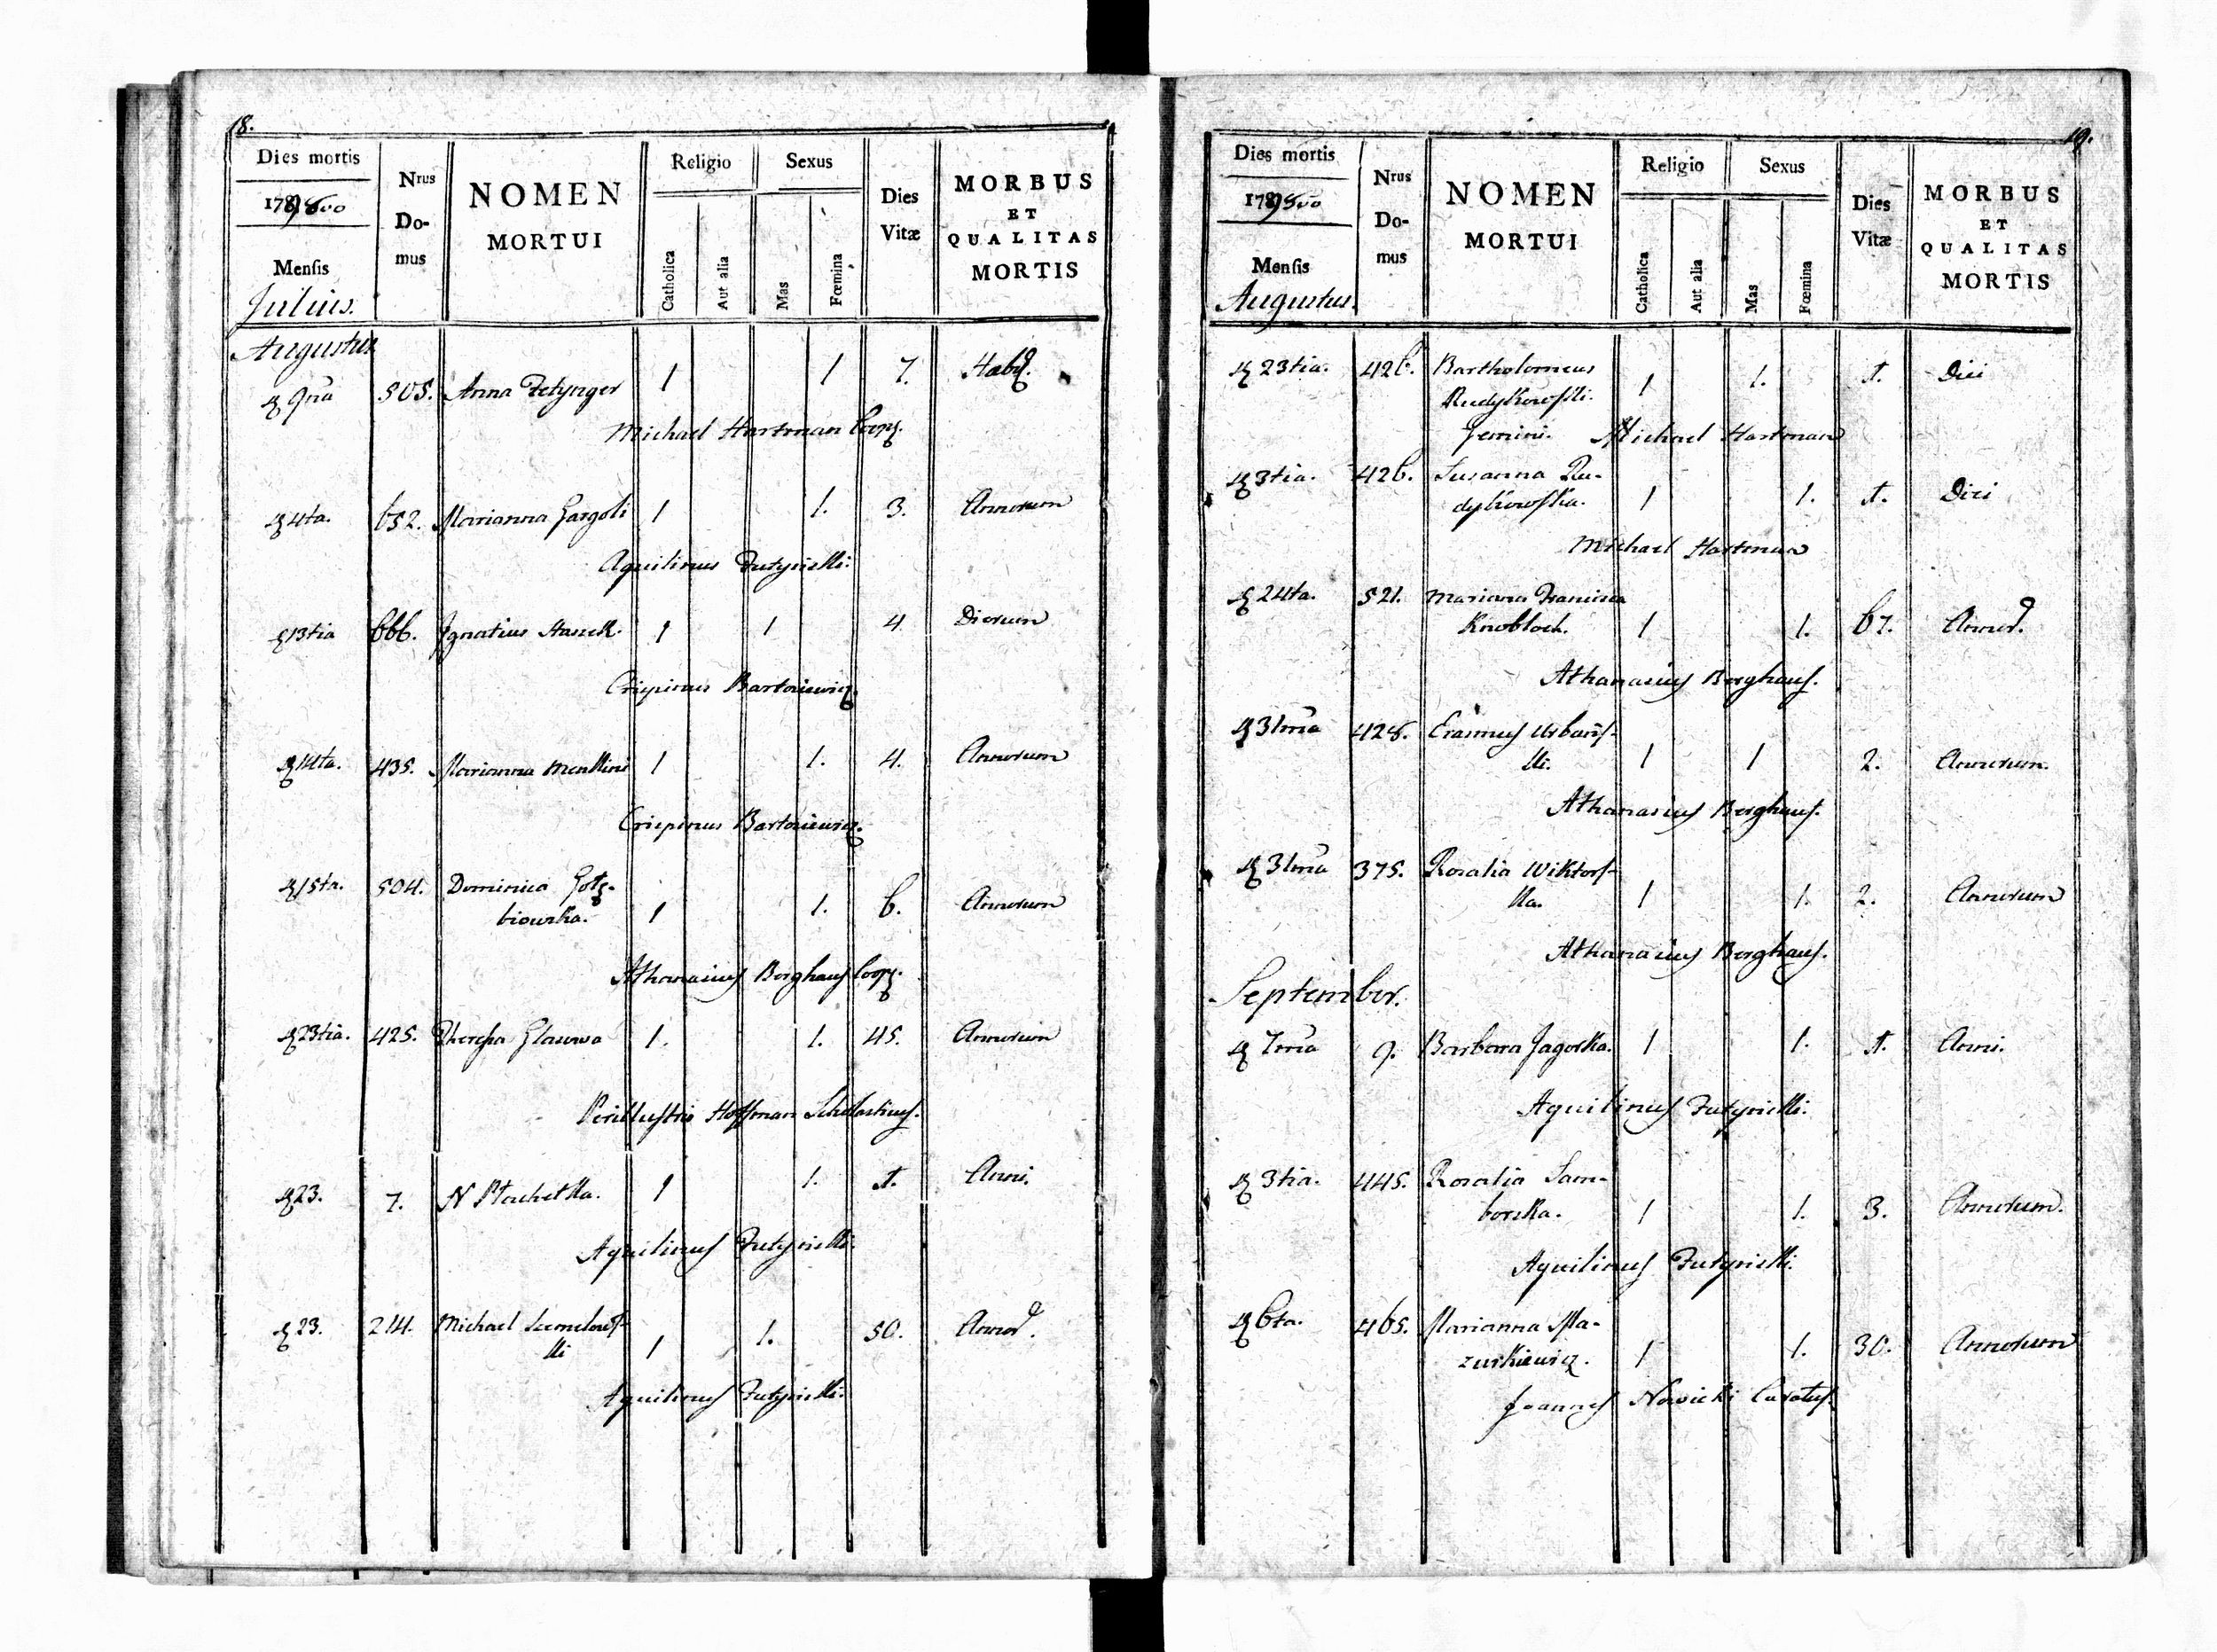 18.
Dies mortis
Nrus Domus
NOMEN MORTUI
Religio
Sexus
Dies Vitæ
MORBUS ET QUALITAS MORTIS
1800
Mensis
Catholica
Aut alia
Mas
Fœmina
Julius.
Augustus
505. Anna 1 1 7.
Michael Hartman
4ta. 652. Marianna Gargoli 1 1. 3. Annorum
Aquilinus
13tia 666. Ignatius 1 1 4 Dierum
Crispinus Bartoniewicz.
14ta. 435. Marianna 1 1. 4. Annorum
Crispinus Bartoniewicz.
15ta. 504. Dominica Gołę-
biowska. 1 1. 6. Annorum
Athanasius Berghaus Coop.
23tia. 425. 1. 1. 45. Annorum
Perillustris Hoffman Scholasticus.
23. 7. N 1 1. 1. Anni.
Aquilinus
23. 214. Michael
ski 1 1. 50. Annor.
Aquilinus
19.
Dies mortis
Nrus Domus
NOMEN MORTUI
Religio
Sexus
Dies Vitæ
MORBUS ET QUALITAS MORTIS
1800
Mensis
Catholica
Aut alia
Mas
Fœmina
Augustus.
23tia. 426. Bartholomeus
Rudykowski. 1 1. 1. Diei
Gemini. Michael Hartman
3tia. 426. Susanna Ru-
dykowska. 1 1. 1. Diei
Michael Hartman
24ta. 521. Mariana Francisca
Knobloch. 1 1. 67. Annor.
Athanasius Berghaus.
31ma 428. Erasmus Urbańs-
ki. 1 1 2. Annorum.
Athanasius Berghaus.
31ma 375. Rosalia Wiktors-
ka. 1 1. 2. Annorum
Athanasius Berghaus.
September.
9. Barbara Jagorska. 1 1. 1. Anni.
Aquilinus
3tia. 445. Rosalia Sam-
borska. 1 1. 3. Annorum.
Aquilinus
6ta. 465. Marianna Ma-
zurkiewicz. 1 1. 30. Annorum
Joannes Nowicki Curatus.